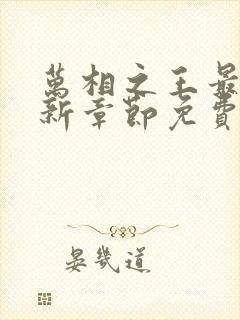 萬相之王最
新章節免費
晏幾道